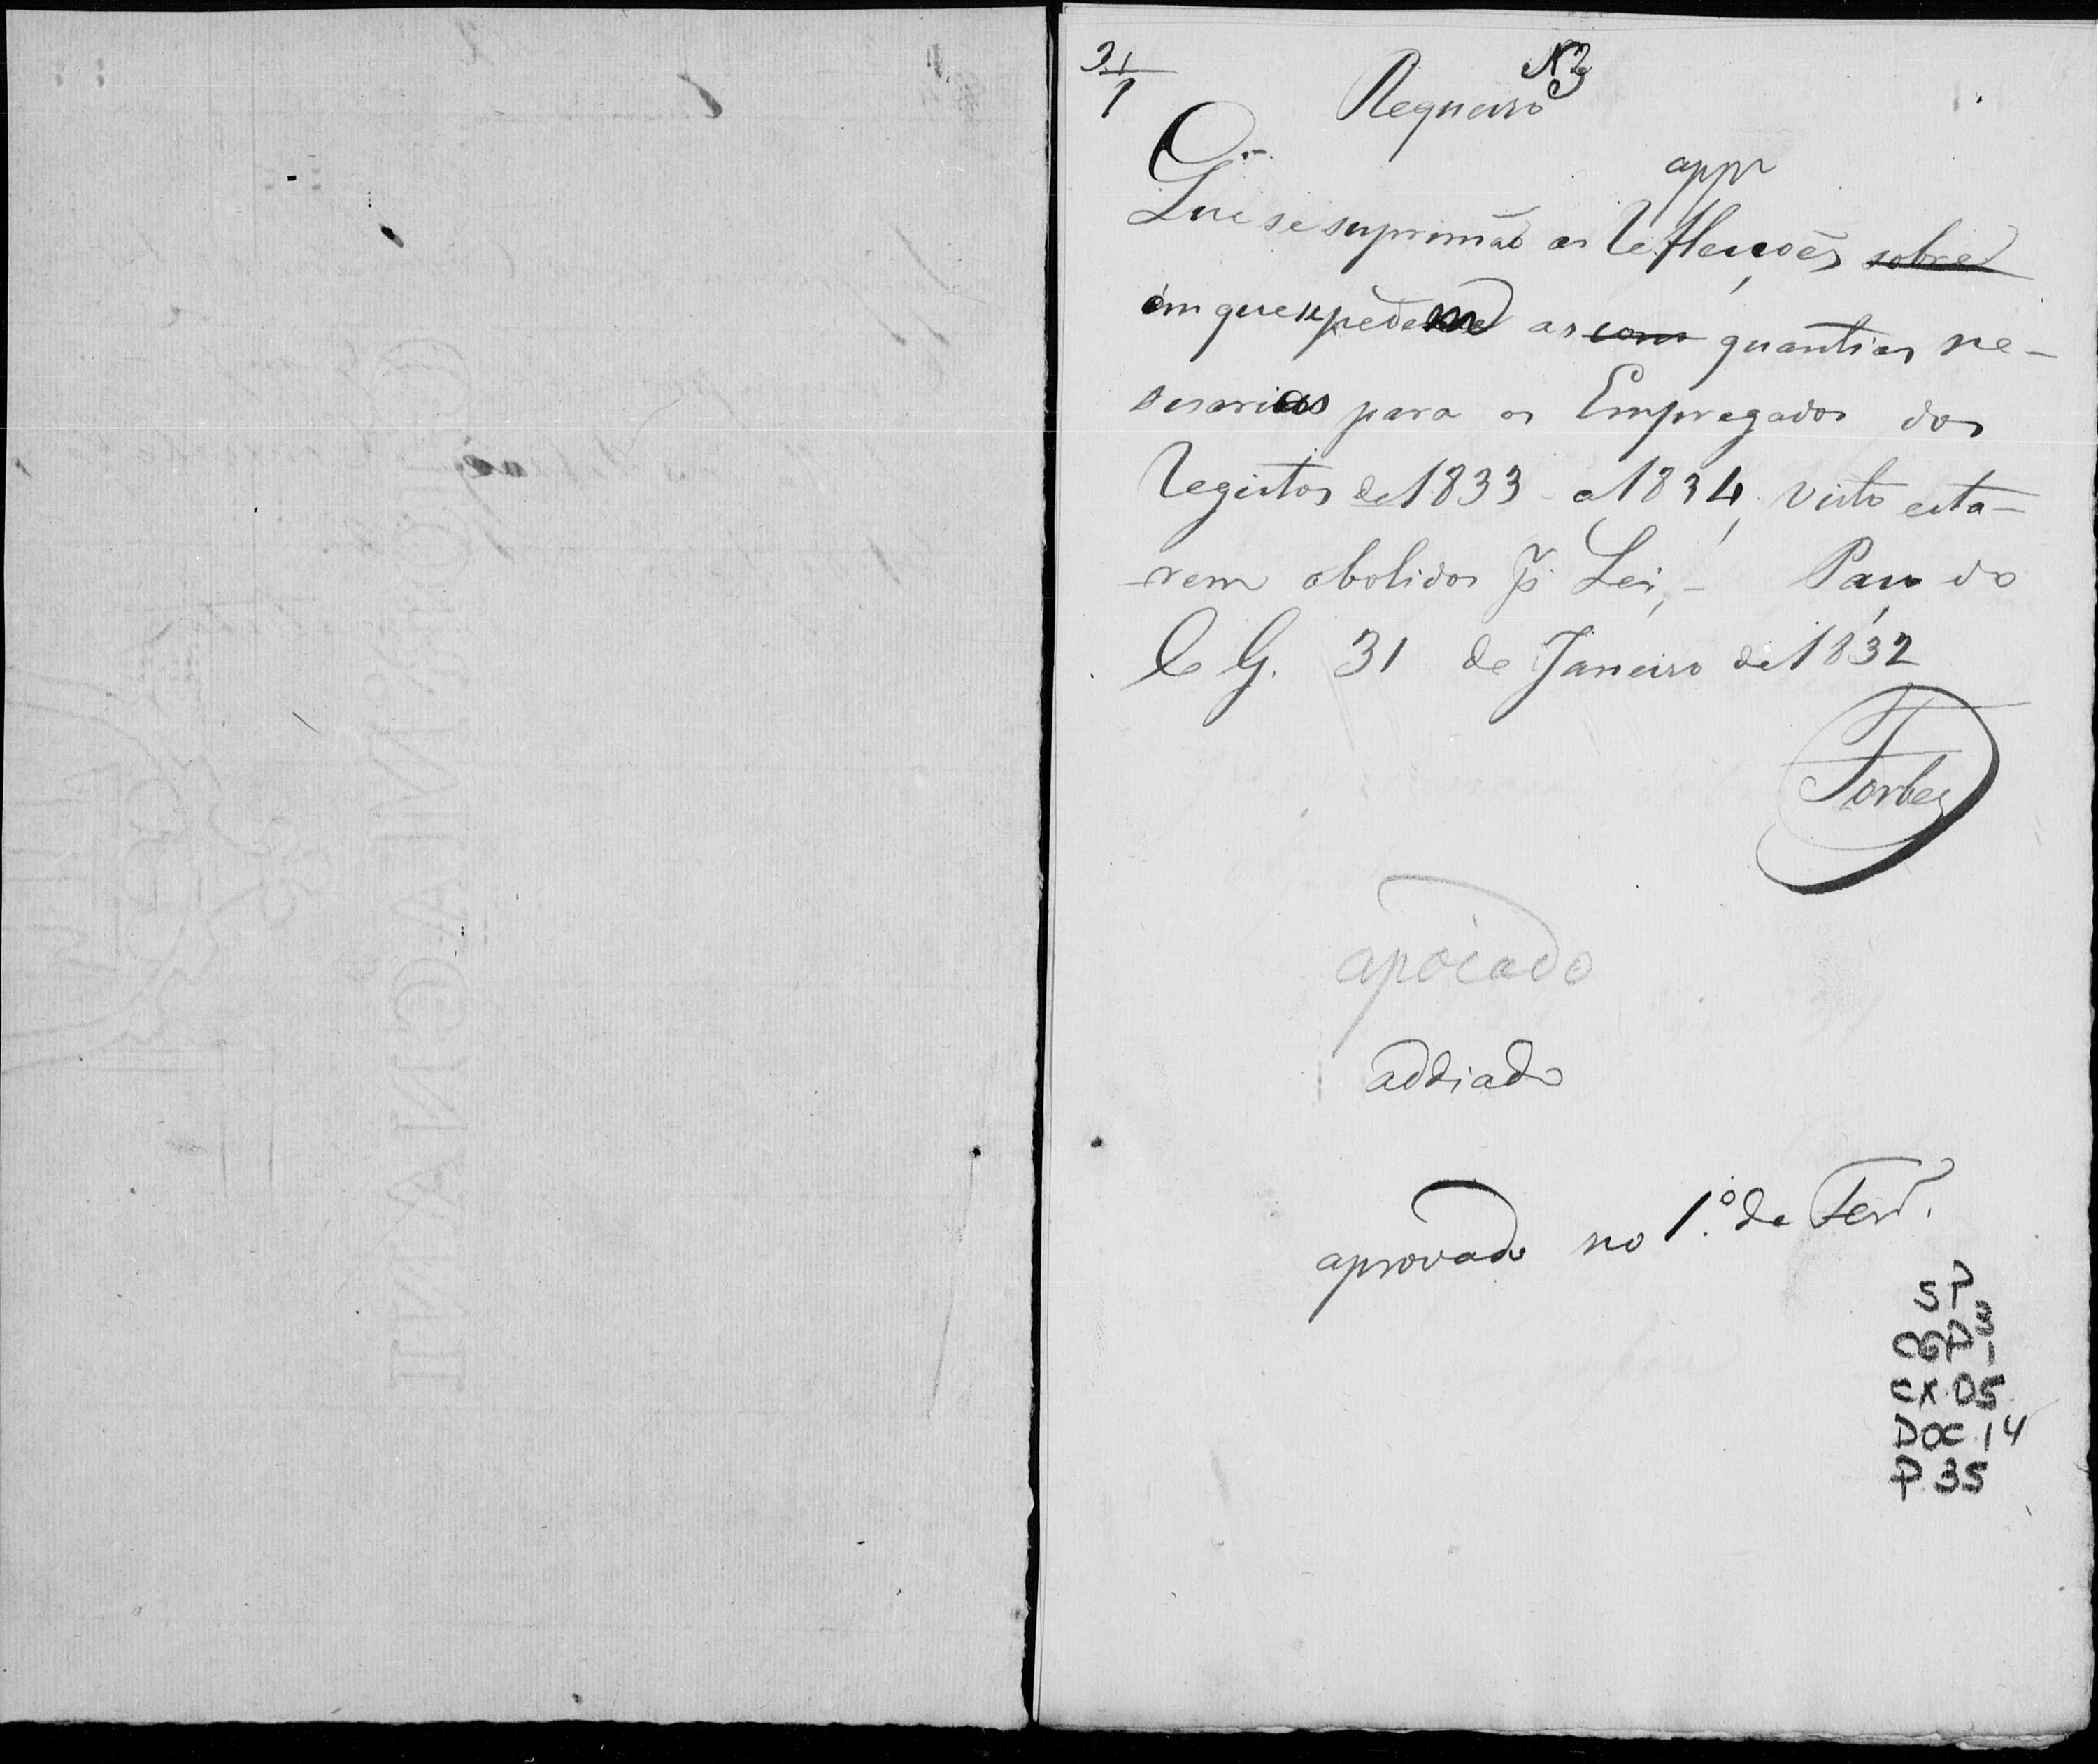 31/1
N 3
Requeiro
appr
Que se suprimaõ as Reflexoẽs sobre
em que se pedem as com quantias ne-
sesarias para os Empregados dos
Registos de 1833 a 1834, visto esta-
-rem abolidos p Lei, - Paço do
C G. 31 de Janeiro de 1832
Forbes
apoiado
addiado
aprovado no 1.º de Fevr.
SP
CGP3
1
CX 05
DOC 14
P 35